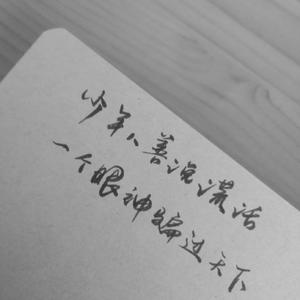 少年人善说谎话
一个眼神骗过天下